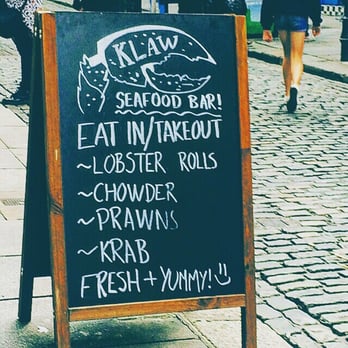 KLAW
SEAFOOD BAR!
EAT IN/TAKEOUT
~LOBSTER ROLLS
~CHOWDER
~PRAWNS
~KRAB
FRESH + YUMMY! :)